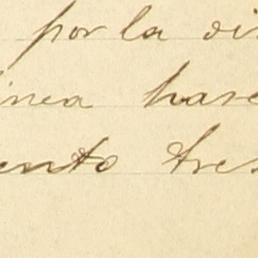 por la di
inea hase
ento tres